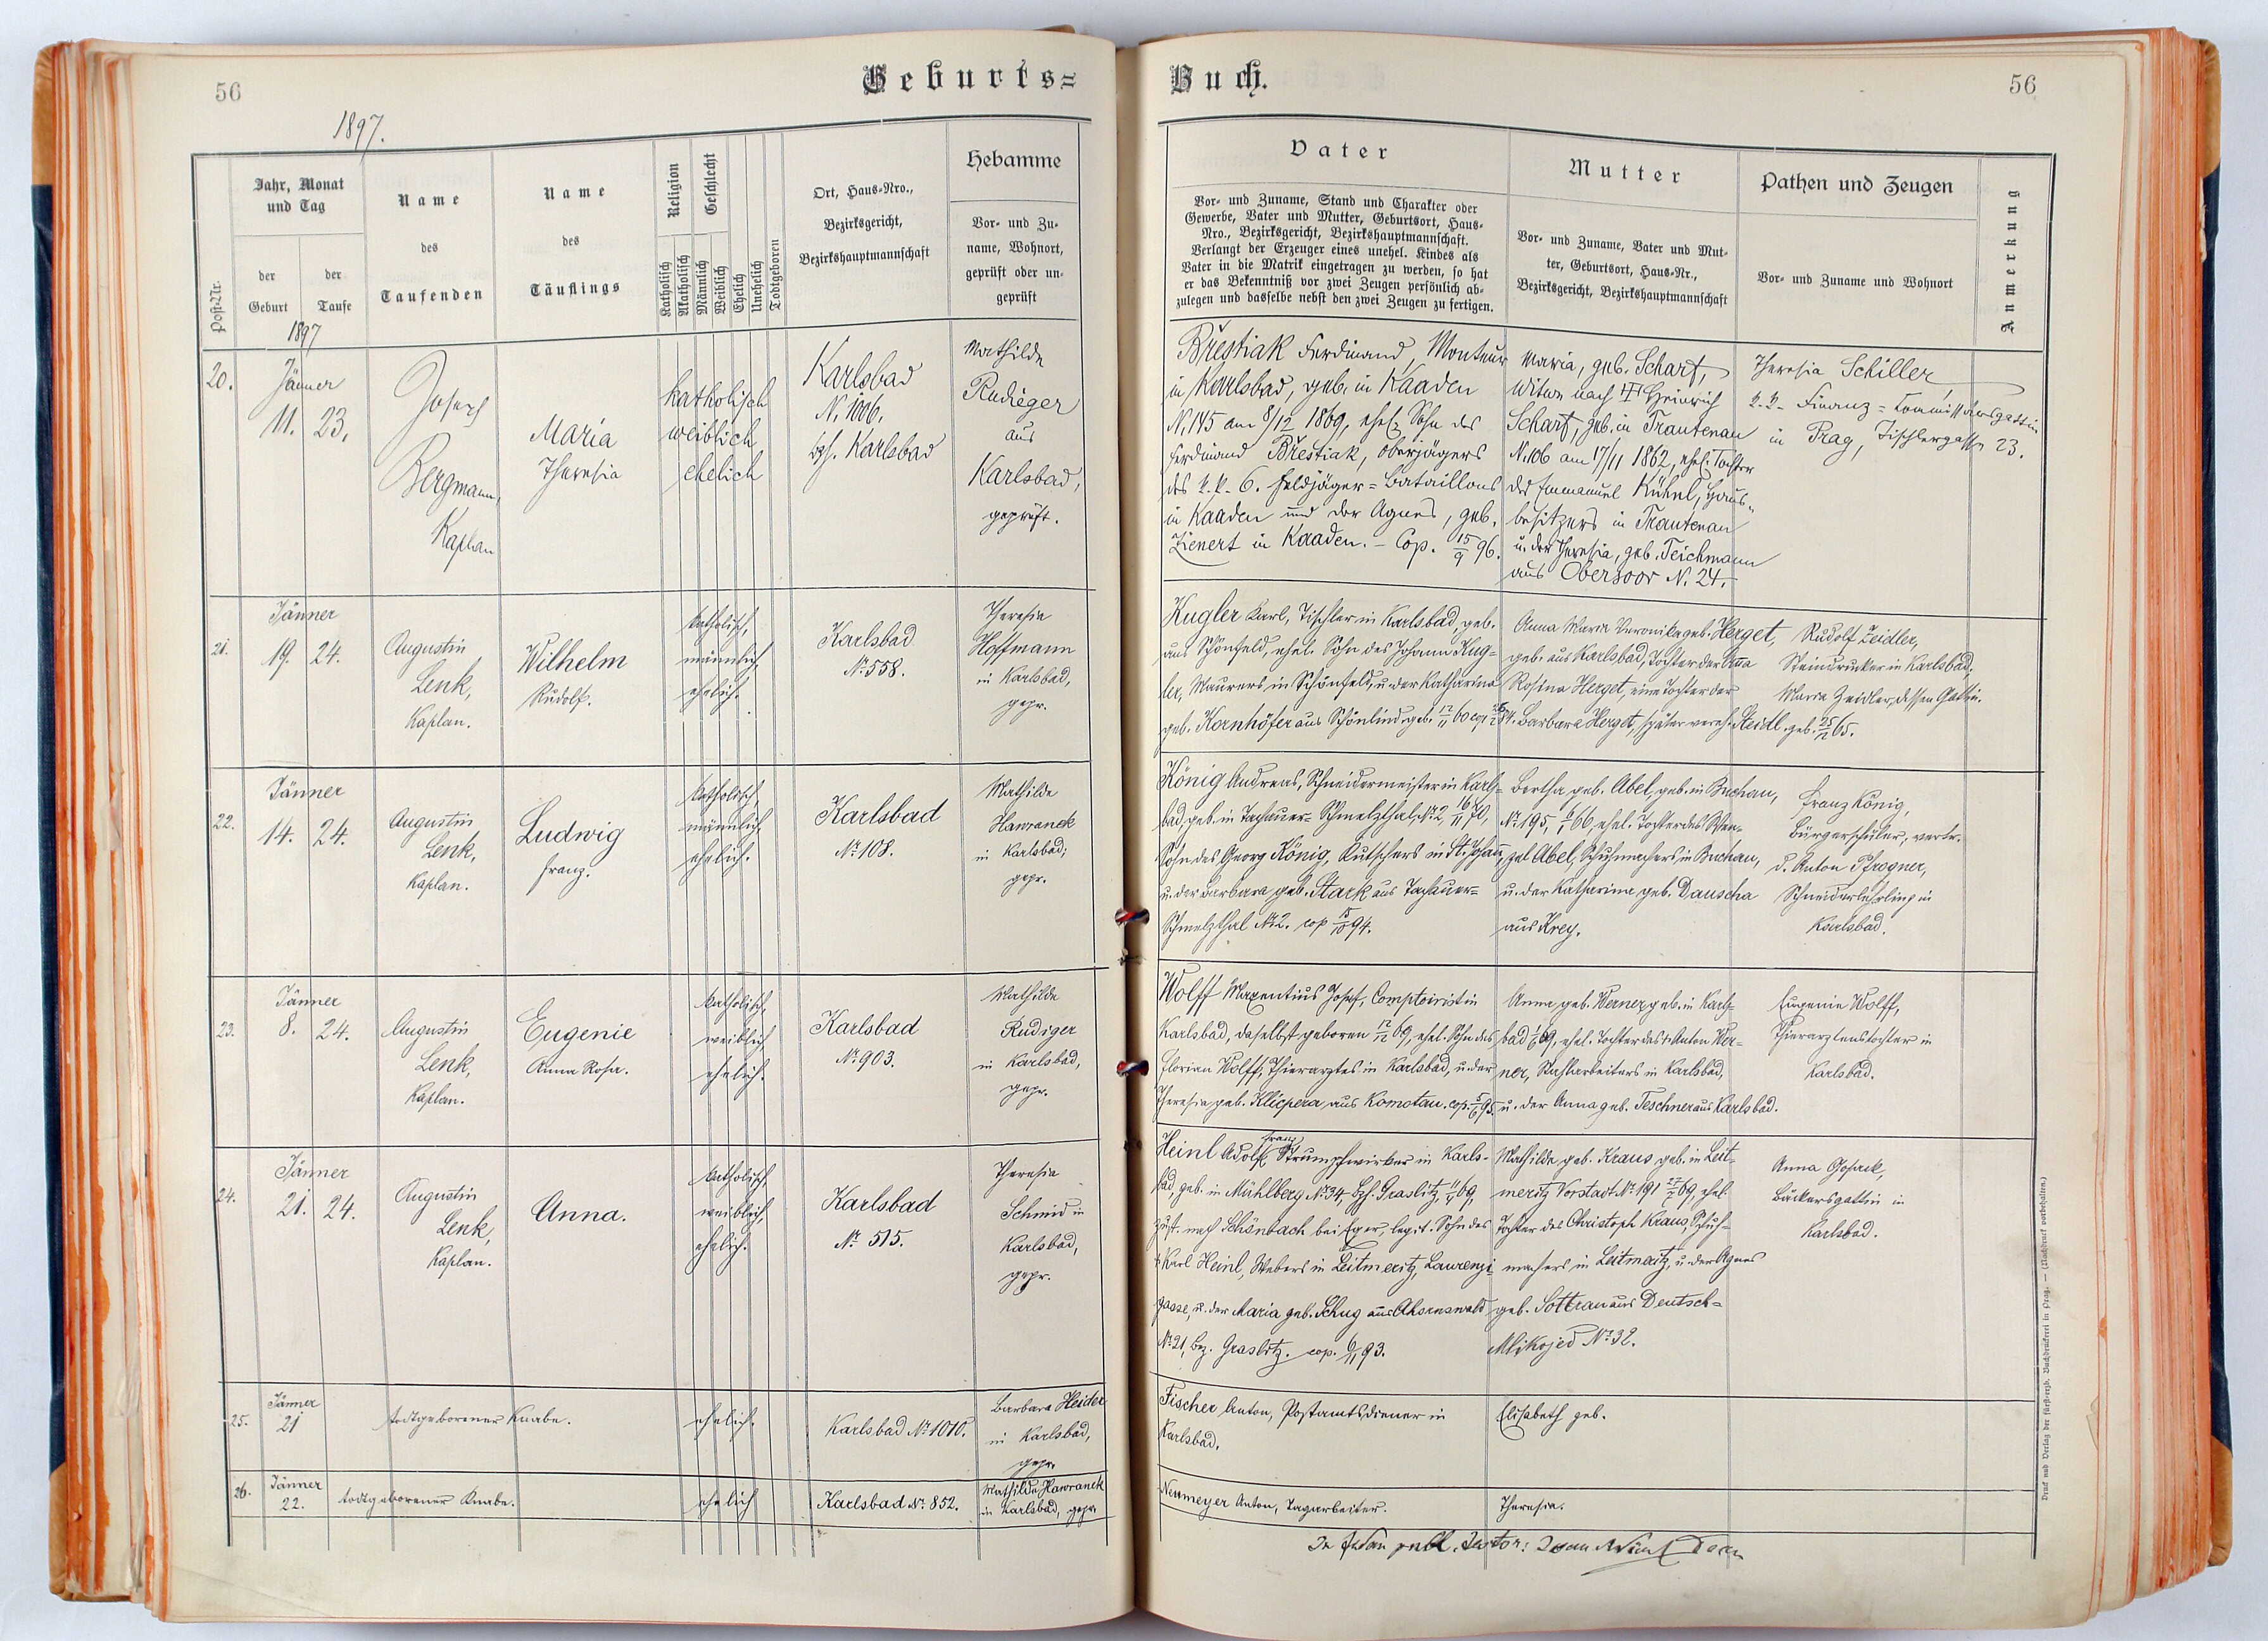 56
Geburts=
1897.
Post-Nr.
Jahr, Monat
und Tag
der
Geburt
der
Taufe
Name
des
Taufenden
Name
des
Täuflings
Religion
Geschlecht
Katholisch
Akatholisch
Männlich
Weiblich
Ehelich
Unehelich
Todtgeboren
Ort, Haus-Nro.,
Bezirksgericht,
Bezirkshauptmannschaft
Hebamme
Vor- und Zu-
name, Wohnort,
geprüft oder un-
geprüft
1897
20.
Jänner
11. 23.
Josef
Bergmann,
Kaplan
Maria
Theresia
katholisch
weiblich
ehelich
Karlsbad
N. 1006,
bzh. Karlsbad
Mathilde
Rudieger
aus
Karlsbad,
geprüft.
21.
Jänner
19. 24.
Augustin
Lenk,
Kaplan.
Wilhelm
Rudolf.
katholisch,
männlich,
ehelich.
Karlsbad
No. 558.
Theresia
Hoffmann
in Karlsbad,
gepr.
22.
Jänner
14. 24.
Augustin
Lenk,
Kaplan.
Ludwig
Franz.
katholisch,
männlich,
ehelich.
Karlsbad
No. 108.
Mathilde
Hawranek
in Karlsbad;
gepr.
23.
Jänner
8. 24.
Augustin
Lenk,
Kaplan.
Eugenie
Anna Rosa.
katholisch,
weiblich,
ehelich.
Karlsbad
No. 903.
Mathilde
Rudiger
in Karlsbad,
gepr.
24.
Jänner
21. 24.
Augustin
Lenk,
Kaplan.
Anna.
katholisch,
weiblich,
ehelich.
Karlsbad
No. 515.
Theresia
Schmid in
Karlsbad,
gepr.
25.
Jänner
21
todtgeborener Knabe.
ehelich.
Karlsbad No. 1010.
Barbara Heider
in Karlsbad,
gepr.
26.
Jänner
22.
todtgeborener Knabe.
ehelich
Karlsbad No. 852.
Mathilde Hawranek
in Karlsbad, gepr.
Buch.
56
Vater
Vor- und Zuname, Stand und Charakter oder
Gewerbe, Vater und Mutter, Geburtsort, Haus-
Nro., Bezirksgericht, Bezirkshauptmannschaft.
Verlangt der Erzeuger eines unehel. Kindes als
Vater in die Matrik eingetragen zu werden, so hat
er das Bekenntniß vor zwei Zeugen persönlich ab-
zulegen und dasselbe nebst den zwei Zeugen zu fertigen.
Mutter
Vor- und Zuname, Vater und Mut-
ter, Geburtsort, Haus-Nr.,
Bezirksgericht, Bezirkshauptmannschaft
Pathen und Zeugen
Vor- und Zuname und Wohnort
Anmerkung
Břestiak Ferdinand, Monteur
in Karlsbad, geb. in Kaaden
N. 145 am 8/12 1869, ehel. Sohn des
Ferdinand Břestiak, Oberjägers
des k. k. 6. Feldjäger=Bataillons
in Kaaden und der Agnes, geb.
Zienert in Kaaden. – Cop. 15/9 96.
Maria, geb. Scharf,
Witwe nach Heinrich
Scharf, geb. in Trautenau
N. 106 am 17/11 1862, ehel. Tochter
des Emmanuel Kühnl, Haus-
besitzers in Trautenau
u. der Theresia, geb. Teichmann
aus Obersoor N. 24.
Theresia Schiller,
k. k. Finanz=Commissärsgattin
in Prag, Tischlergasse 23.
Kugler Karl, Tischler in Karlsbad, geb.
aus Schönfeld, ehel. Sohn des Johann Kug-
ler, Maurers in Schönfeld, u. der Katharina
geb. Kornhöfer aus Schönlind, geb. 17/11 60 cop.
Anna Maria Veronika geb. Herget,
geb. aus Karlsbad, Tochter der Anna
Rosina Herget, eine Tochter der
Barbara Herget, später vereh. Steidl. geb. 25/12 65.
Rudolf Zeidler,
Steindrucker in Karlsbad;
Maria Zeidler, dessen Gattin.
König Andreas, Schneidermeister in Karls-
bad, geb. in Tachauer-Schmelzthal No. 2, 16/11 70,
Sohn des Georg König, Kutschers in St. Johann,
u. der Barbara geb. Stark aus Tachauer-
Schmelzthal No. 2. cop 15/10 94.
Bertha geb. Abel, geb. in Buchau,
No. 195, 6/1 66, ehel. Tochter des Wen-
zel Abel, Schuhmachers in Buchau,
u. der Katharina geb. Dauscha
aus Krey.
Franz König,
Bürgerschüler, vertr.
d. Anton Pfrogner,
Schneiderlehrling in
Karlsbad.
Wolff Maxentius Josef, Comptoirist in
Karlsbad, daselbst geboren 12/12 69, ehel. Sohn des
Florian Wolff, Thierarztes in Karlsbad, u. der
Theresia geb. Klicpera aus Komotau. cop. 5/6 95
Anna geb. Werner geb. in Karls-
bad 69, ehel. Tochter des † Anton Wer-
ner, Stahlarbeiters in Karlsbad,
u. der Anna geb. Teschner aus Karlsbad.
Eugenie Wolff,
Thierarztenstochter in
Karlsbad.
Heinl Adolf Franz Strumpfwirker in Karls-
bad, geb. in Mühlberg No. 34, Bzh. Graslitz, 69,
zust. nach Schönbach bei Eger, legit. Sohn des
† Karl Heinl, Webers in Leitmeritz, Laurenzi-
gasse, u. der Maria geb. Schug aus Ahornswald
No. 21, Bez. Graslitz. cop. 6/11 93.
Mathilde geb. Kraus geb. in Leit-
meritz Vorstadt No. 191 69, ehel.
Tochter des Christoph Kraus, Schuh-
machers in Leitmeritz, u. der Agnes
geb. Sottran aus Deutsch-
Mlikojed No. 32.
Anna
Bäckersgattin in
Karlsbad.
Fischer Anton, Postamtsdiener in
Karlsbad.
Elisabeth geb.
Neumeyer Anton, Tagarbeiter.
Theresia.
Druck und Verlag der fürst-erzb. Buchdruckerei in Prag. — (Nachdruck vorbehalten.)